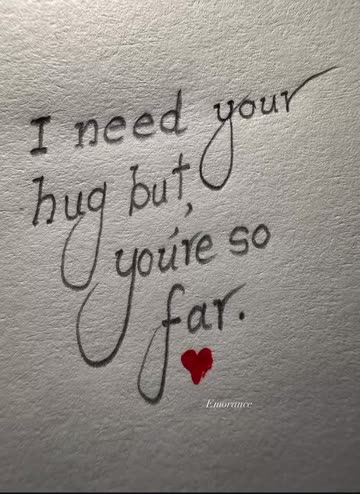 I need your
hug but,
you're so
far.
Emorance